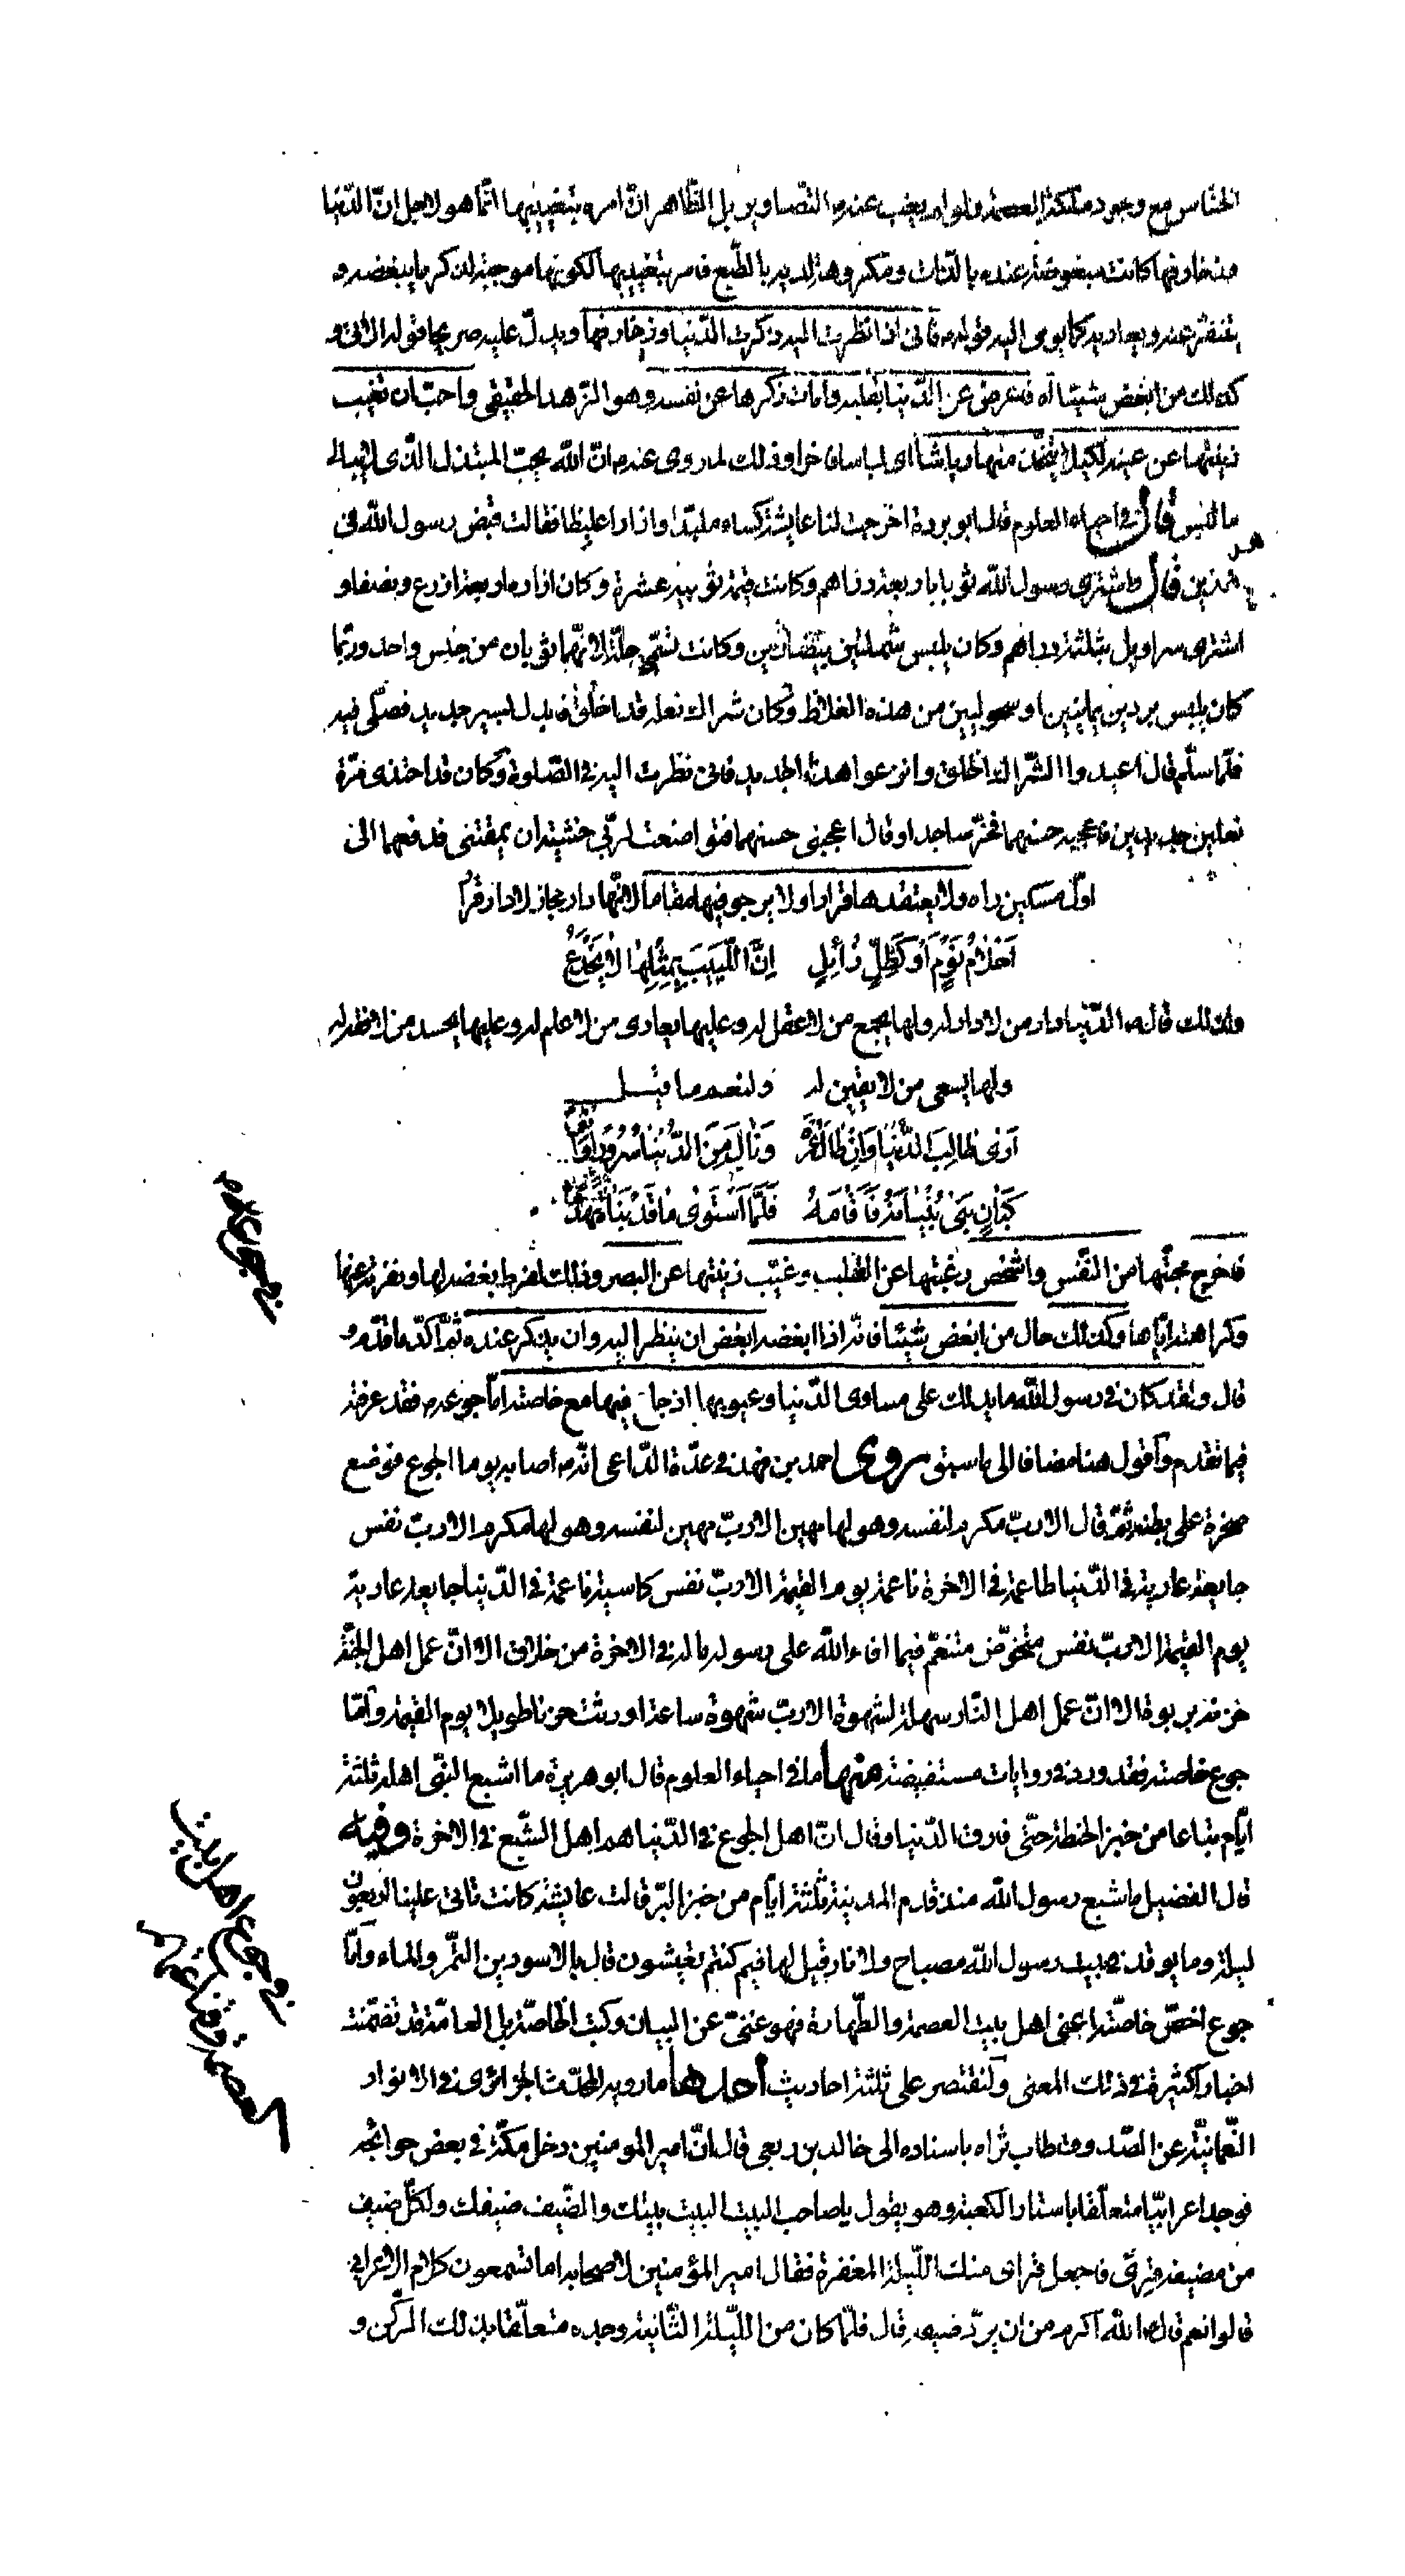 الخنّاس مع وجود ملكة العصمة ولو لم يغيب عنه التصاوير بل الظّاهر انّ امره بتغييبها انّما هو لاجل انّ الدّنيا
وزخارفها كانت مبغوضة عنده بالذّات ومكروهة لديه بالطّبع فامر بتغييبها لكونها موجبة لذكر ما يبغضه و
يتنفّر عنه ويعاديه كما يومى اليه قوله فانّى اذا نظرت اليه ذكرت الدّنيا وزخارفها ويدلّ عليه صريحا قوله الاتى و
كذلك من ابغض شيئا اه فاعرض عن الدّنيا بقلبه وامات ذكرها عن نفسه وهو الزّهد الحقيقى واحبّ ان تغيب
زينتها عن عينه لكيلا يتّخذ منها رياشا اى لباسا فاخرا وذلك لما روى عنه انّ الله يحبّ المبتذل الّذى لا يبالى
ما لبس قال فى احياء العلوم قال ابو بردة اخرجت لنا عايشة كساء ملبّدا وازارا غليظا فقالت قبض رسول الله فى
هذين قال واشترى رسول الله ثوبا باربعة دراهم وكانت قيمة ثوبيه عشرة وكان ازاره اربعة اذرع ونصفا و
اشترى سراويل بثلثة دراهم وكان يلبس شملتين بيضائين وكانت تسمّى حلّة لانّهما ثوبان من جنس واحد وربّما
كان يلبس بردين يمانيين او سحوليين من هذه الغلاظ وكان شراك نعله قد اخلق فابدل بسير جديد فصلّى فيه
فلمّا سلّم قال اعيدوا الشّراك الخلق وانزعوا هذا الجديد فانّى نظرت اليه فى الصّلوة وكان قد احتذى مرّة
نعلين جديدين فاعجبه حسنهما فخرّ ساجدا وقال اعجبنى حسنهما فتواضعت لربّى خشية ان يمقتنى فدفعهما الى
اوّل مسكين راه ولا يعتقدها قرارا ولا يرجو فيها مقاما لانّها دار مجاز لا دار قرار
اَحْلامُ نَوْمٍ اَوْ كَظِلٍّ زائِلٍ اِنَّ اللَّبيبَ بِمِثْلِها لا يُخْدَعُ
ولذلك قال الدّنيا دار من لا دار له ولها يجمع من لا عقل له وعليها يعادى من لا علم له وعليها يحسد من لا فقه له
ولها يسعى من لا يقين له ولنعم ما قيل
اَرى طالِبَ الدُّنْيا وَاِنْ طالَ عُمْرُهُ وَنالَ مِنَ الدُّنْيا سُرُورًا وَاَنْعُما
كَبانٍ بَنى بُنْيانَهُ فَاَقامَهُ فَلَمَّا اسْتَوى ما قَدْ بَناهُ تَهَدَّما
فاخرج محبّتها من النّفس واشخص رغبتها عن القلب وغيّب زينتها عن البصر وذلك لفرط بغضه لها ونفرته عنها
وكراهته ايّاها وكذلك حال من ابغض شيئا فانّه اذا ابغضه ابغض ان ينظر اليه وان يذكر عنده ثمّ اكّد ما قدّم و
قال ولقد كان فى رسول الله ما يدلّك على مساوى الدّنيا وعيوبها اذ جاع فيها مع خاصّته امّا جوعه فقد عرفته
فيما تقدم واقول هنا مضافا الى ما سبق روى احمد بن فهد فى عدّة الدّاعى انّه اصابه يوما الجوع فوضع
صخرة على بطنه ثمّ قال الا ربّ مكرم لنفسه وهو لها مهين الا ربّ مهين لنفسه وهو لها مكرم الا ربّ نفس
جايعة عارية فى الدّنيا طاعمة فى الاخرة ناعمة يوم القيمة الا ربّ نفس كاسية ناعمة فى الدّنيا جايعة عارية
يوم القيمة الا ربّ نفس متخوّض متنعّم فيما افاء الله على رسوله ما له فى الاخرة من خلاق الا انّ عمل اهل الجنّة
حزنة بربوة الا انّ عمل اهل النّار سهلة لشهوة الا ربّ شهوة ساعة اورثت حزنا طويلا يوم القيمة وامّا
جوع خاصّته فقد ورد فى روايات مستفيضة منها ما فى احياء العلوم قال ابو هريرة ما اشبع النّبى اهله ثلثة
ايّام تباعا من خبز الحنطة حتّى فارق الدّنيا وقال انّ اهل الجوع فى الدّنيا هم اهل الشّبع فى الاخرة وفيه
قال الفضيل ما شبع رسول الله منذ قدم المدينة ثلثة ايّام من خبز البرّ قالت عايشة كانت تاتى علينا اربعون
ليلة وما يوقد فى بيت رسول الله مصباح ولا نار قيل لها فبم كنتم تعيشون قال بالاسودين التّمر والماء وامّا
جوع اخصّ خاصّته اعنى اهل بيت العصمة والطّهارة فهو غنىّ عن البيان وكتب الخاصّة بل العامّة قد تضمّنت
اخبارا كثيرة فى ذلك المعنى ولنقتصر على ثلثة احاديث احدها ما رويه المحدّث الجزائرى فى الانوار
النّعمانيّة عن الصّدوق طاب ثراه باسناده الى خالد بن ربعى قال انّ امير المومنين دخل مكّة فى بعض حوائجه
فوجد اعرابيّا متعلّقا باستار الكعبة وهو يقول يا صاحب البيت البيت بيتك والضّيف ضيفك ولكلّ ضيف
من مضيفه قرى فاجعل قراى منك اللّيلة المغفرة فقال امير المؤمنين لاصحابه اما تسمعون كلام الاعرابى
قالوا نعم قال الله اكرم من ان يردّ ضيفه قال فلمّا كان من اللّيلة الثّانية وجده متعلّقا بذلك الرّكن و
فى جوعه
فى جوع اهل بيت
العصمة